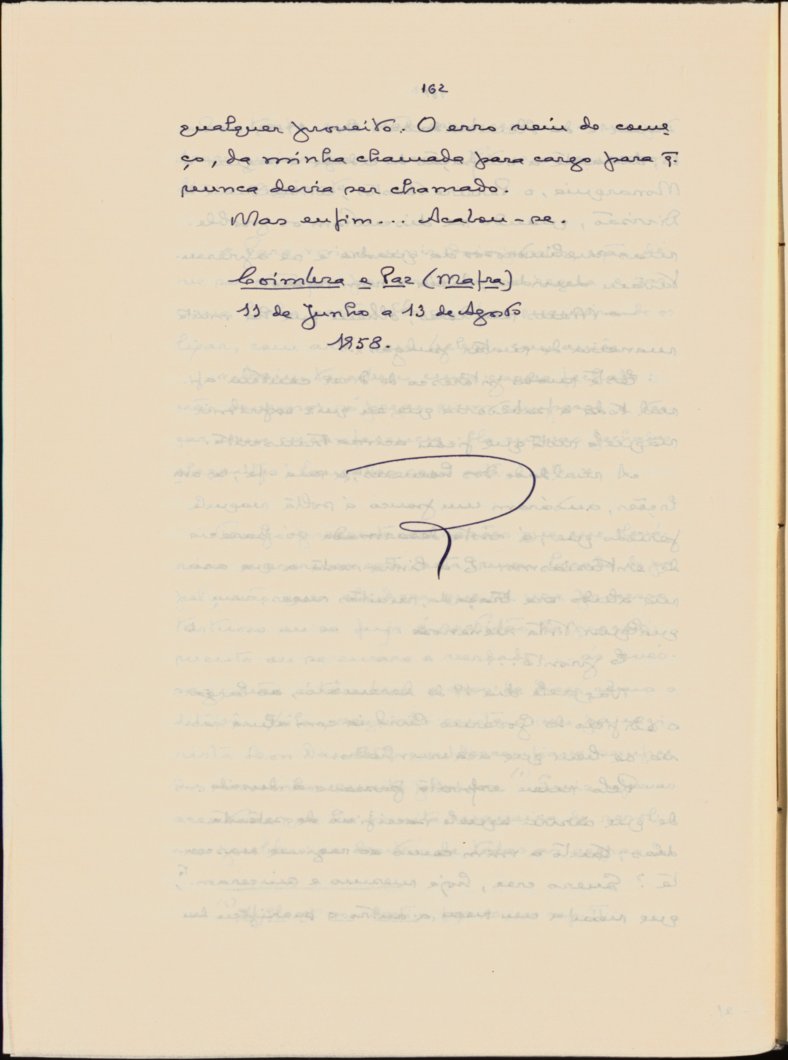 162
qualquer proveito. O erro veiu do come-
ço, da minha chamada para cargo para q̄.
nunca devia ser chamado.
Mas enfim... Acabou-se.
Coimbra e Paz (Mafra)
11 de Junho a 13 de Agosto
1958.